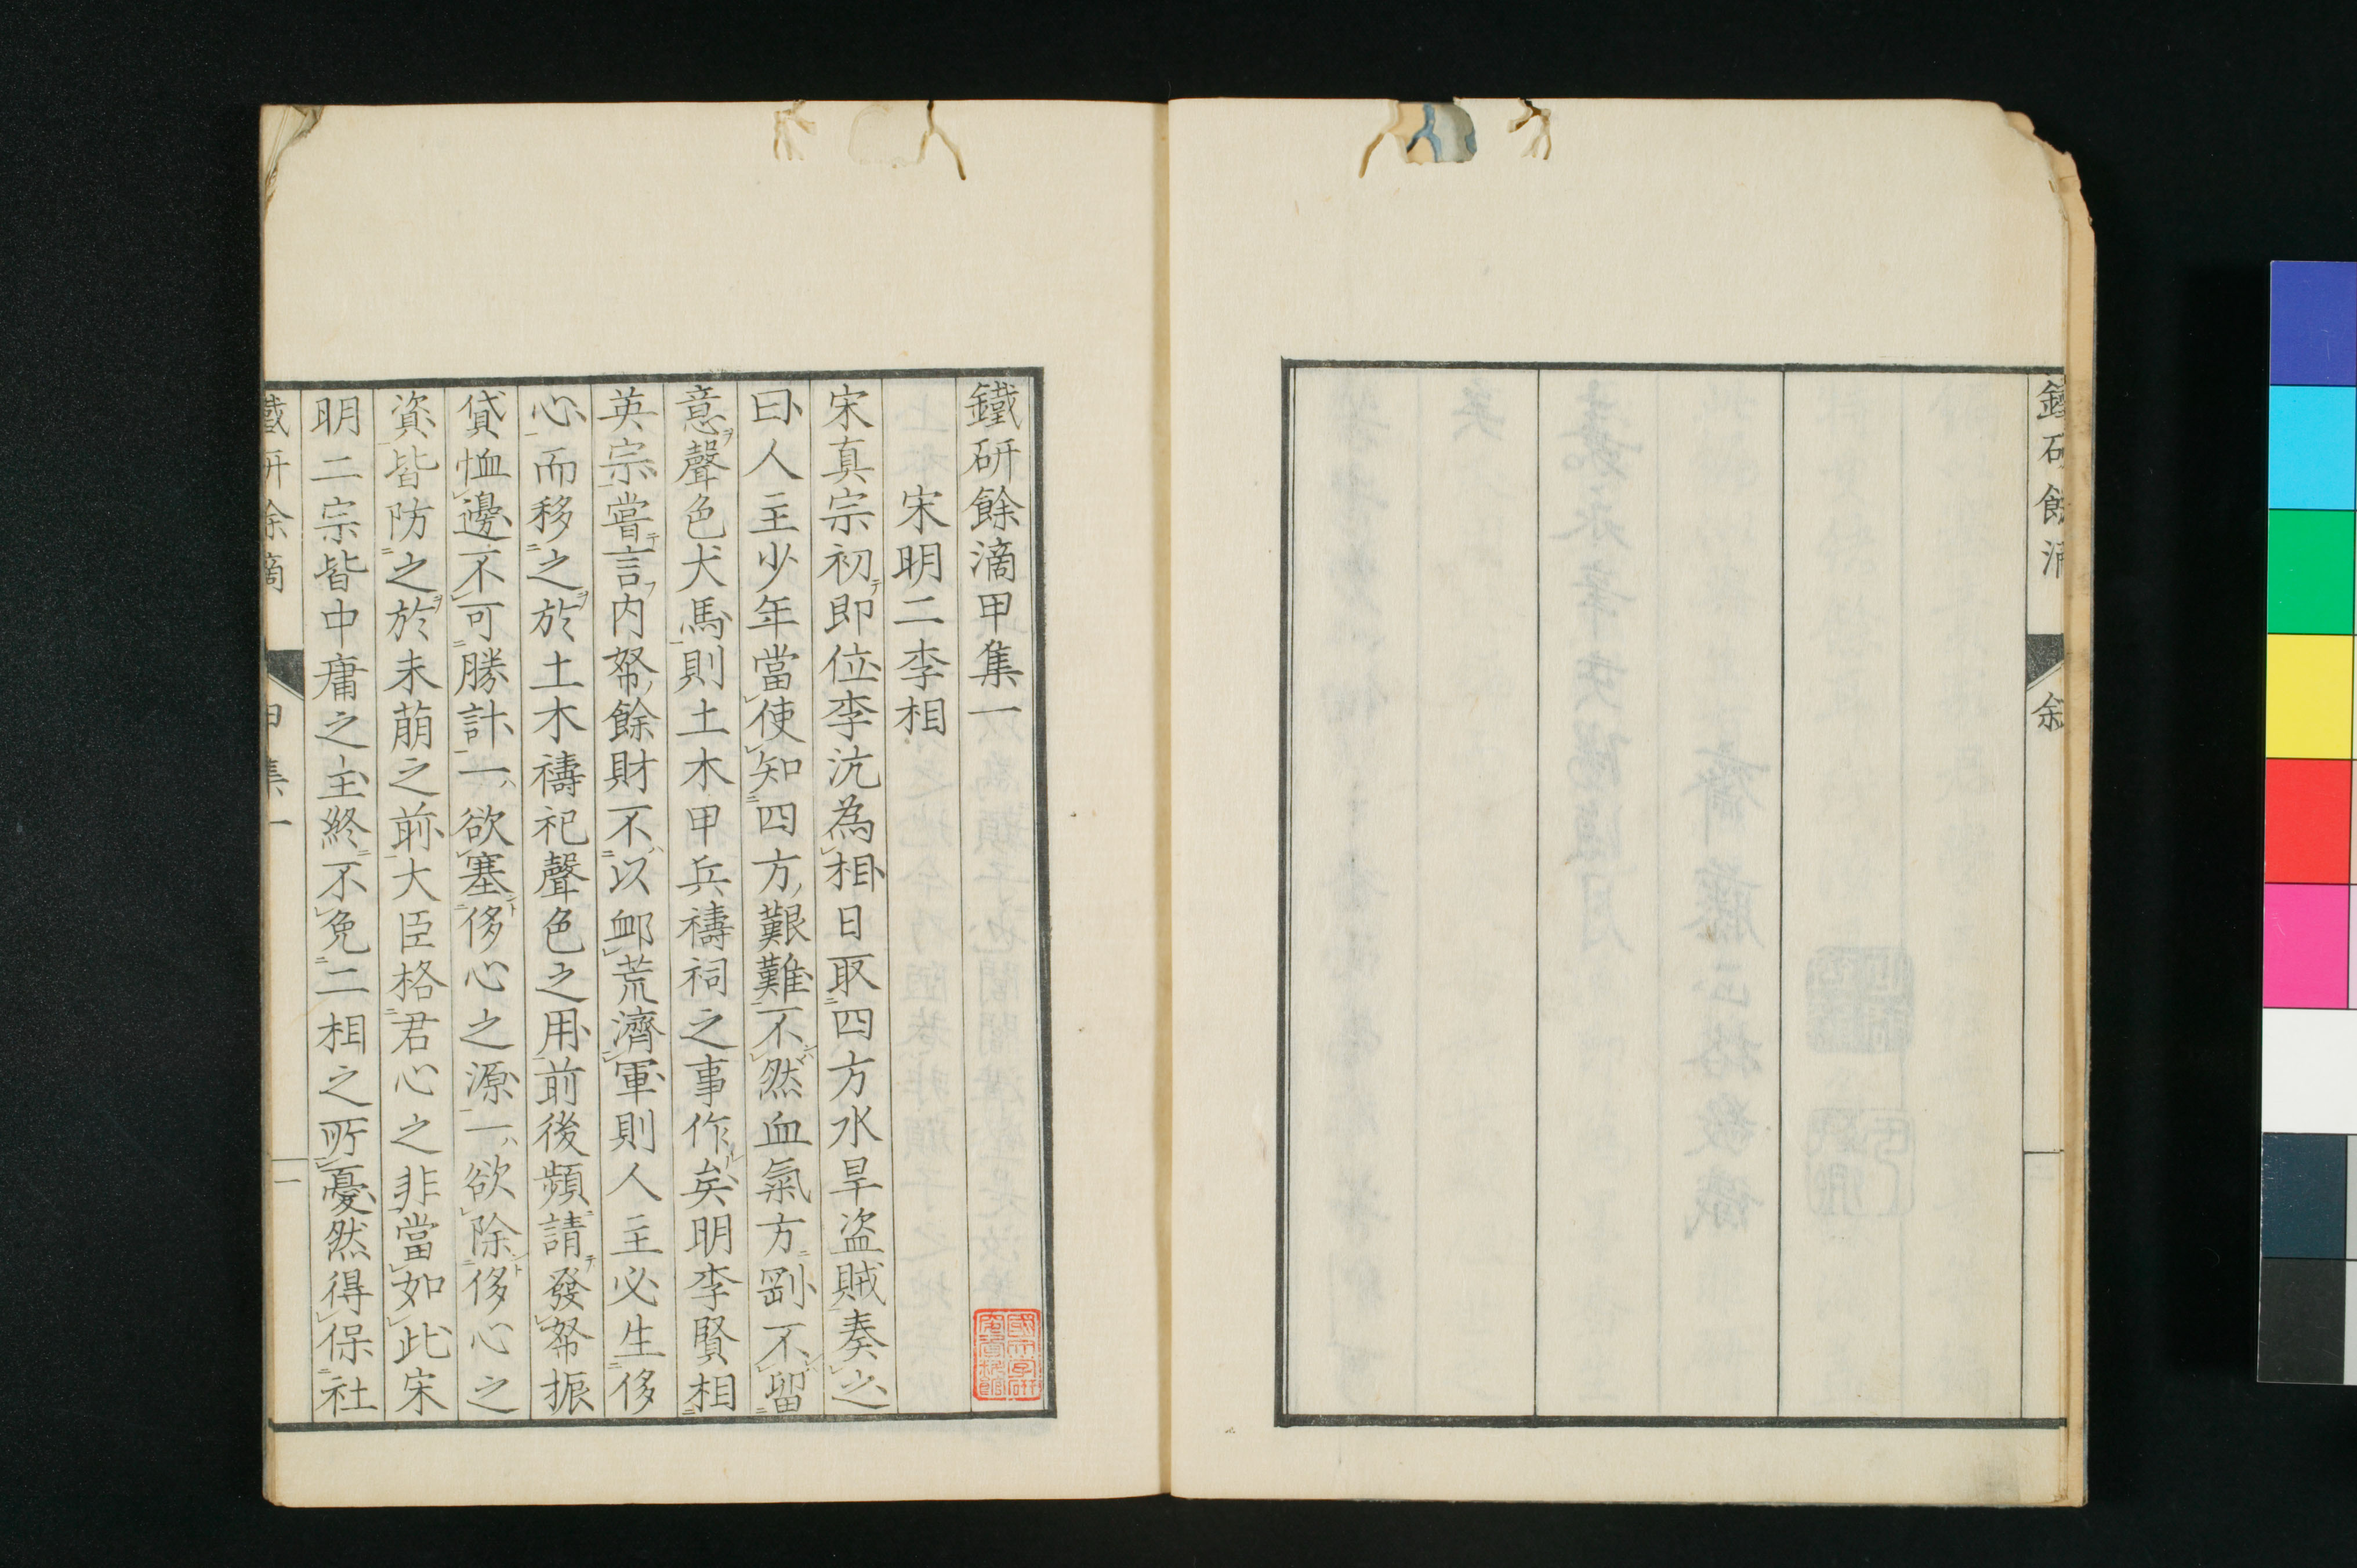 鐵研餘滴
叙
鐵研餘滴甲集一
宋明二李相
宋真宗初即位李沆為相日取四方水旱盗賊奏之
曰人主少年當使知四方艱難不然血氣方剛不留
意聲色犬馬則土木甲兵禱祠之事作矣明李賢相
英宗嘗言内帑餘財不以卹荒濟軍則人主必生侈
心而移之於土木禱祀聲色之用前後頻請發帑振
貸恤邊不可勝計一欲塞侈心之源一欲除侈心之
資皆防之於未萠之前大臣格君心之非當如此宋
明二宗皆中庸之主終不免二相之所憂然得保社
鐵研餘滴
甲集一
一